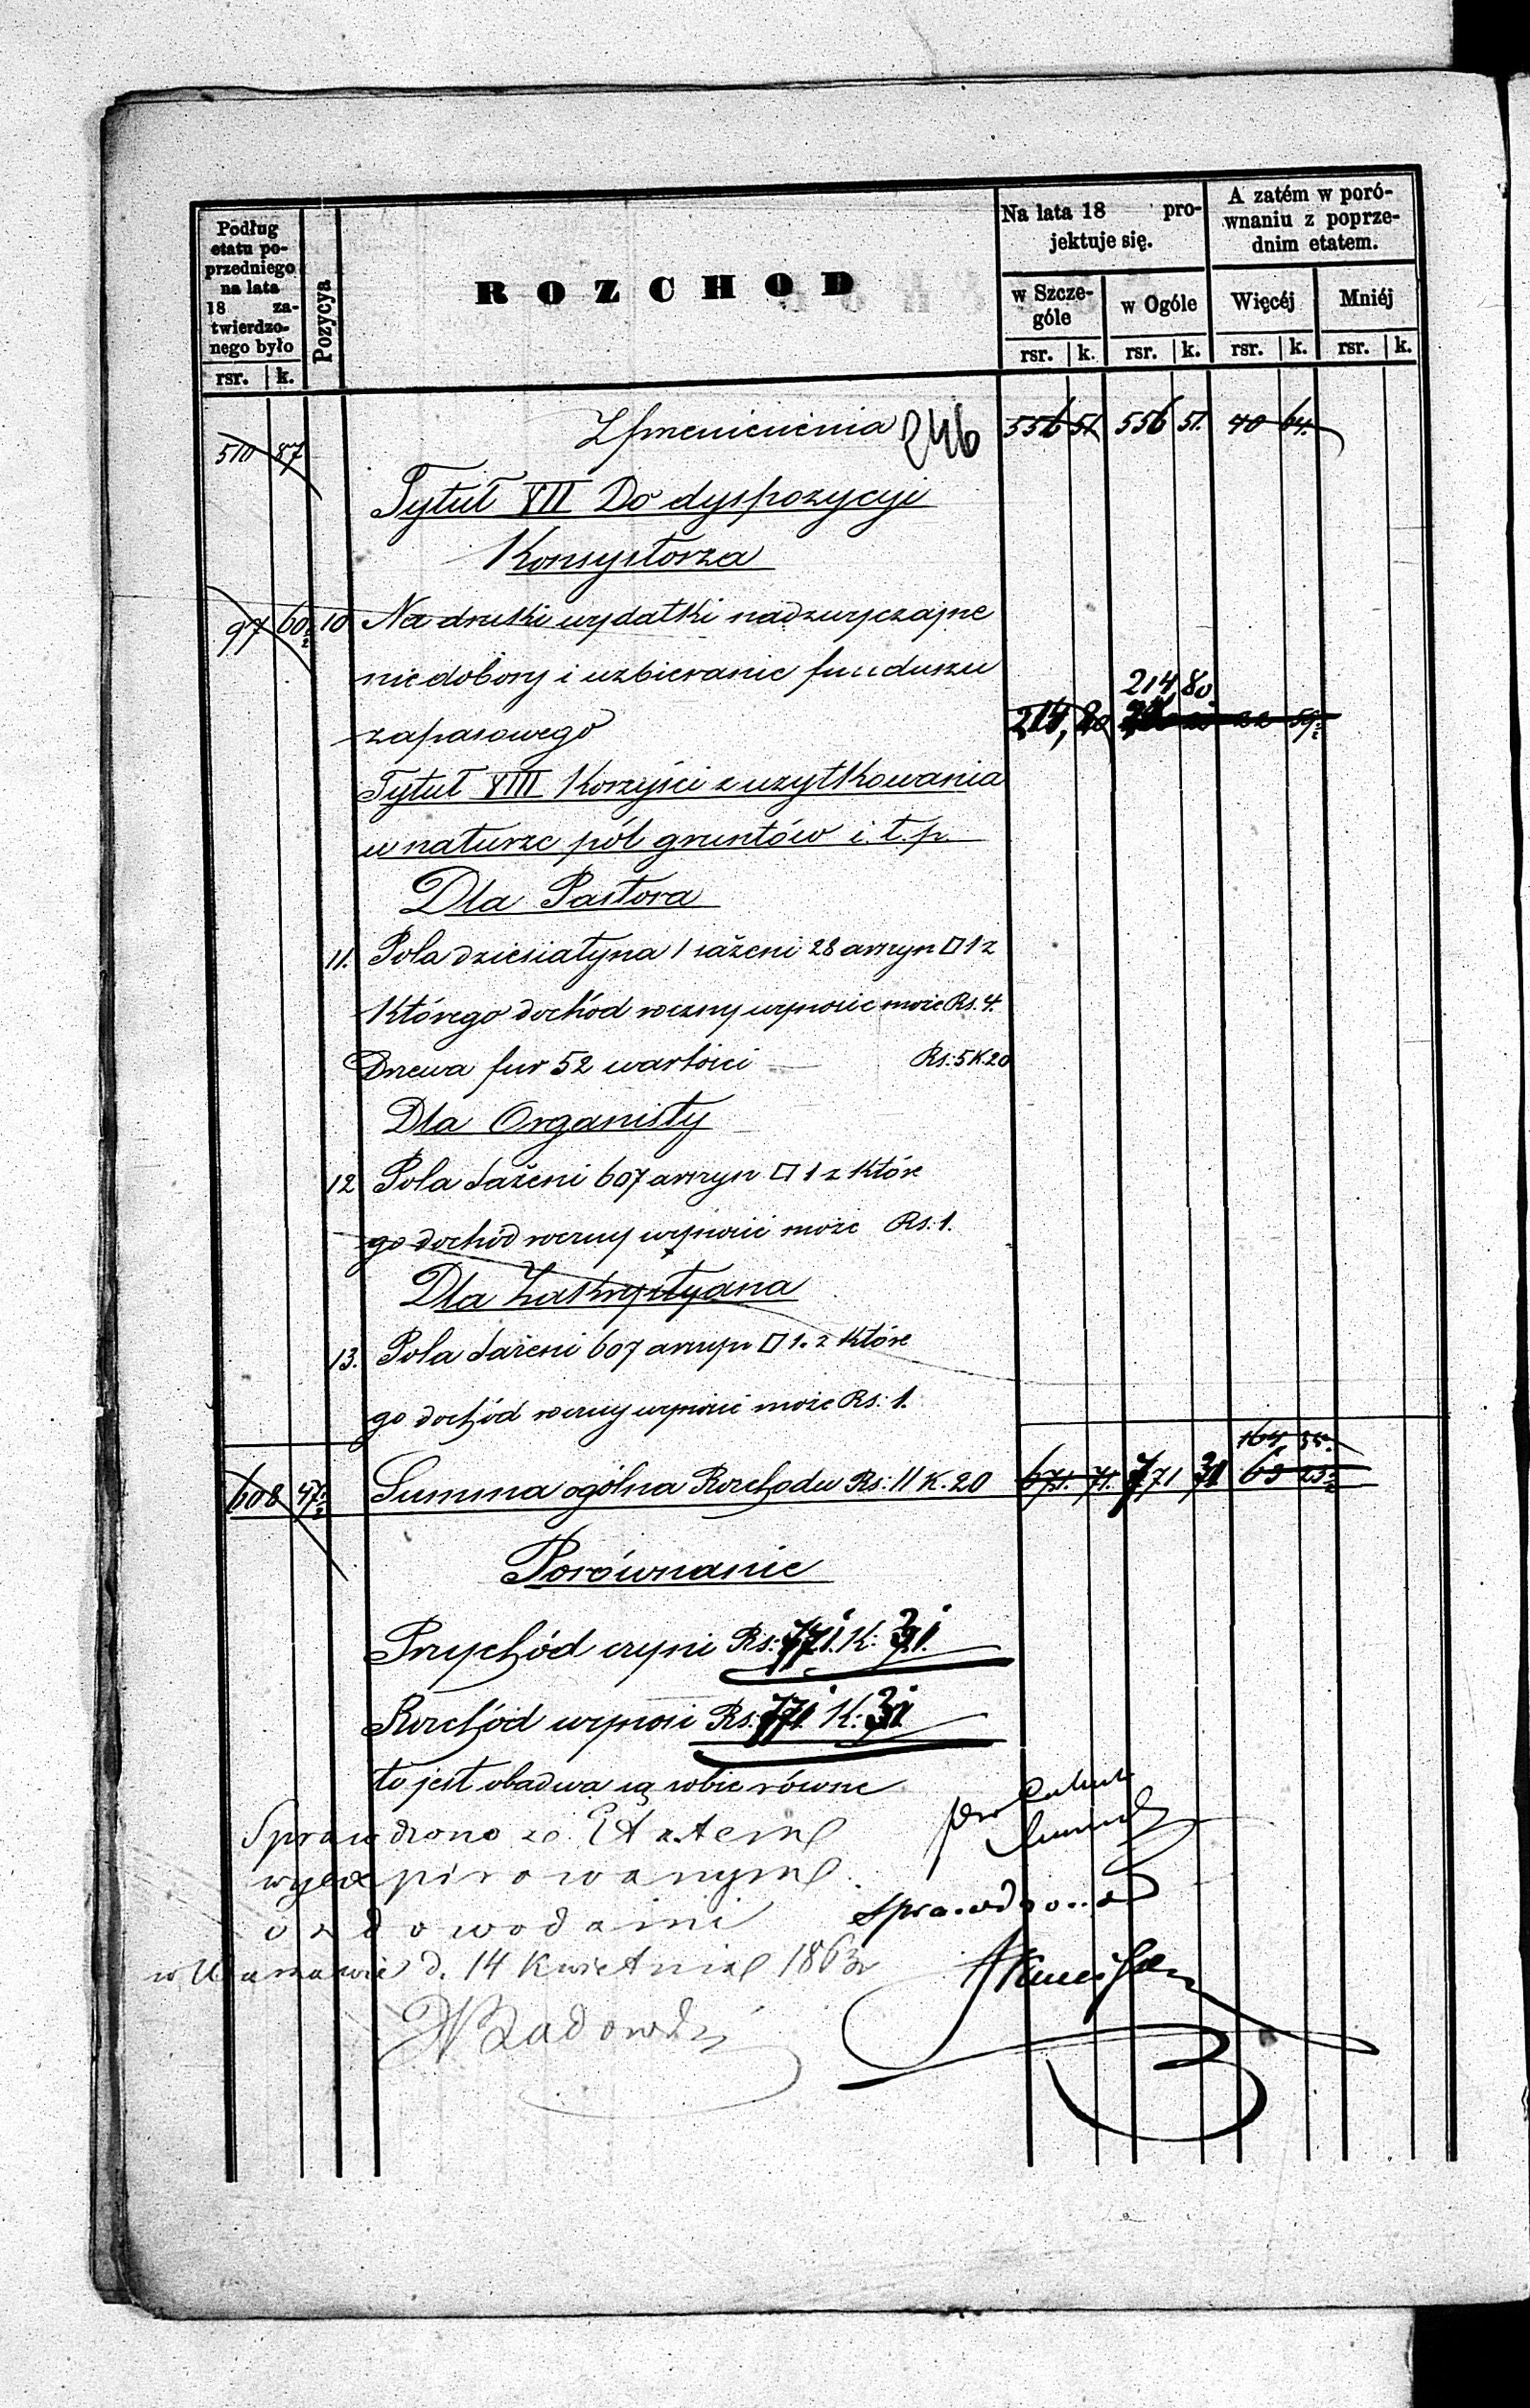 Podług
etatu po-
przedniego
na lata
18 za-
twierdzo-
nego było
rsr. k.
Pozycya
ROZCHOD
Na lata 18 pro-
jektuje się.
w Szcze-
góle
rsr. k.
w Ogóle
rsr. k.
A zatém w poró-
wnaniu z poprze-
dnim etatem.
Więcéj
rsr. k.
Mniéj
rsr. k.
510 87 Z przeniesienia 246 556 51 556 51. 40 64.
Tytuł VII Do dyspozycyi
Konsystorza
97 60 10 Na druki wydatki nadzwyczajne
niedobory i uzbieranie funduszu
214, 80
zapasowego 214, 80
Tytuł VIII Korzyści z użytkowania
w naturze pól gruntów i.t.p.
Dla Pastora
11. Pola dziesiatyna 1 sażeni 28 arszyn □ 1 z
którego dochód roczny wynosić może Rs. 4.
Drzewa fur 52 wartości Rs: 5 K. 20
Dla Organisty
12 Pola sażeni 607 arszyn □ 1 z które
go dochód roczny wynosić może Rs. 1.
Dla Zakrystyana
13. Pola sażeni 607 arszyn □ 1. z które
go dochód roczny wynosić może Rs: 1.
164
608 47 Summa ogólna Rozchodu Rs: 11 K. 20 671. 71. 771 31 63 23
Porównanie
Przychód czyni Rs: 771. K: 31.
Rozchód wynosi Rs: 771. K: 31.
to jest obadwa są sobie równe
Sprawdzono ze Etatem
wyexpirowanym
o z dowodami Sprawdzono
w Warszawie d. 14 Kwietnia 1863